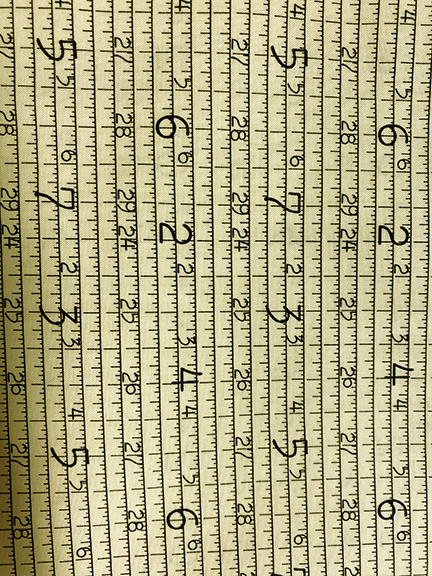 4 5 6 2 3 4 5 6
6 2 4 6
27 28 29 24 25 26 27 28
4 5 6 2 3 4 5 6
5 7 3 5
27 28 29 24 25 26 27 28
4 5 6 2 3 4 5 6
6 2 4 6
27 28 29 24 25 26 27 28
4 5 6 2 3 4 5 6
5 7 3 5
27 28 29 24 25 26 27 28